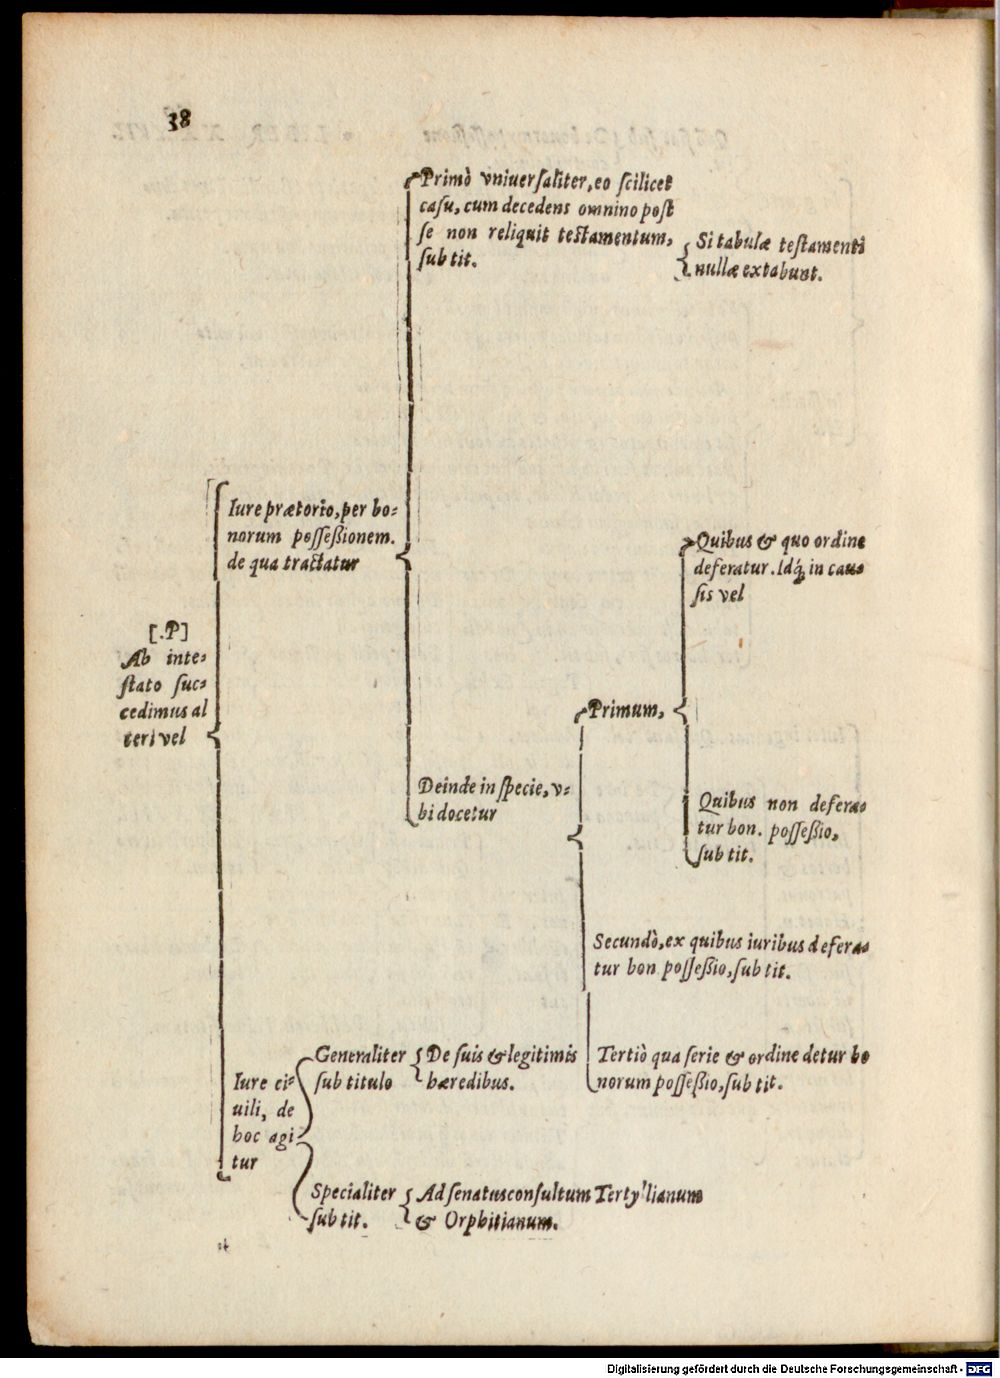 38
Primò vniuersaliter, eo scilicet
casu, cum decedens omnino post
se non reliquit testamentum,
sub tit.
Si tabulæ testamenti
nullæ extabunt.
Iure prætorio, per bo-
norum possessionem.
de qua tractatur
Quibus & quo ordine
deferatur. Idq́; in cau-
sis vel
[.P]
Ab inte-
stato suc-
cedimus al
teri vel
Primum,
Deinde in specie, v-
bi docetur
Quibus non defera-
tur bon. possessio,
sub tit.
Secundò, ex quibus iuribus defera-
tur bon possessio, sub tit.
Tertiò qua serie & ordine detur bo
norum possessio, sub tit.
Iure ci-
uili, de
hoc agi
tur
Generaliter
sub titulo
De suis & legitimis
hæredibus.
Specialiter
sub tit.
Ad senatusconsultum Tertyllianum
& Orphitianum.
Digitalisierung gefördert durch die Deutsche Forschungsgemeinschaft - DFG